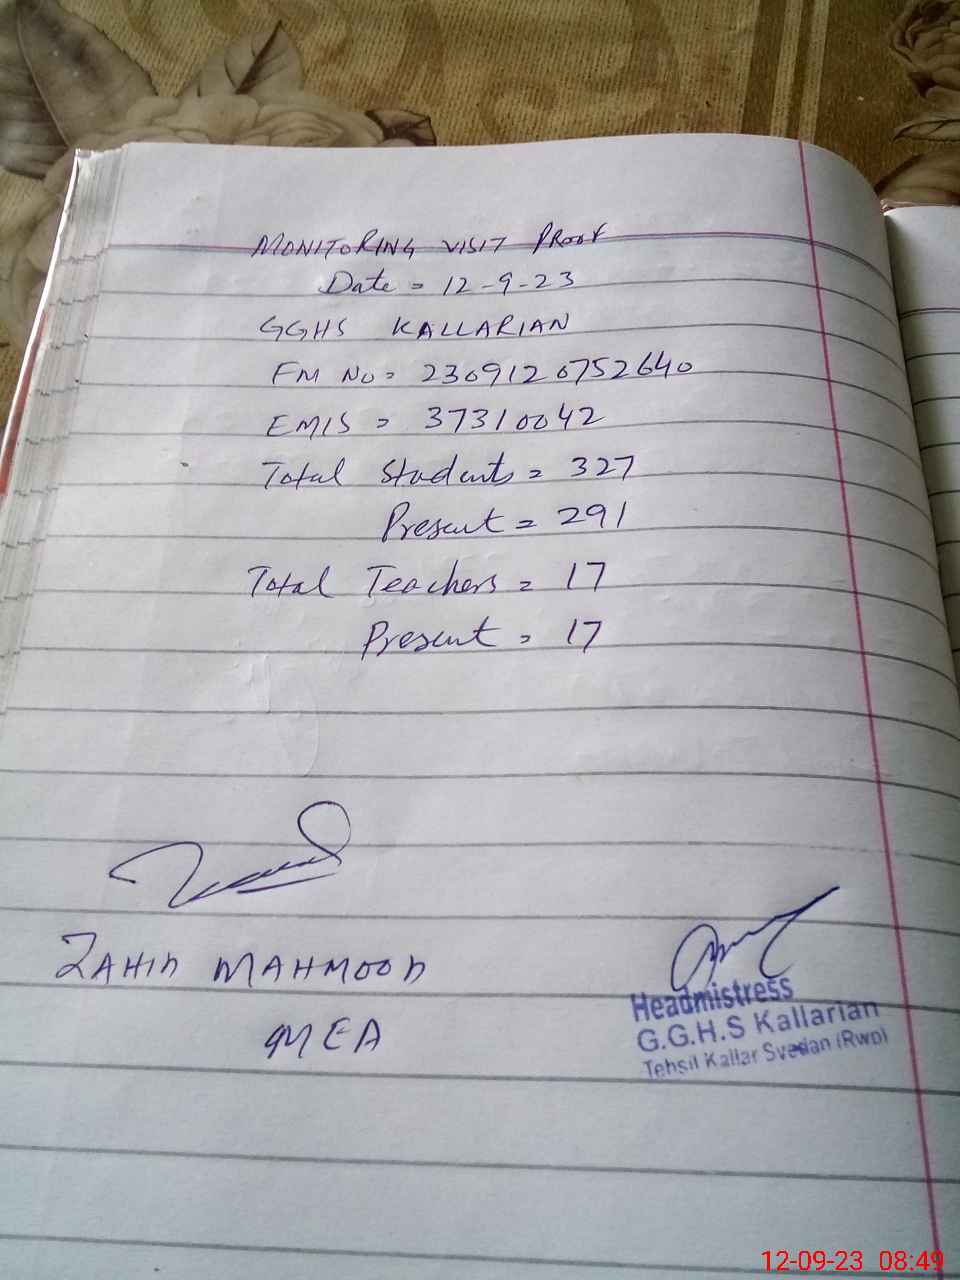 MONITORING VISIT PROOF
Date = 12-9-23
GGHS KALLARIAN
FM No = 2309120752640
EMIS = 37310042
Total Students = 327
Present = 291
Total Teachers = 17
Present = 17
ZAHID MAHMOOD
MEA
Headmistress
G.G.H.S Kallarian
Tehsil Kallar Syedan (Rwp)
12-09-23 08:49